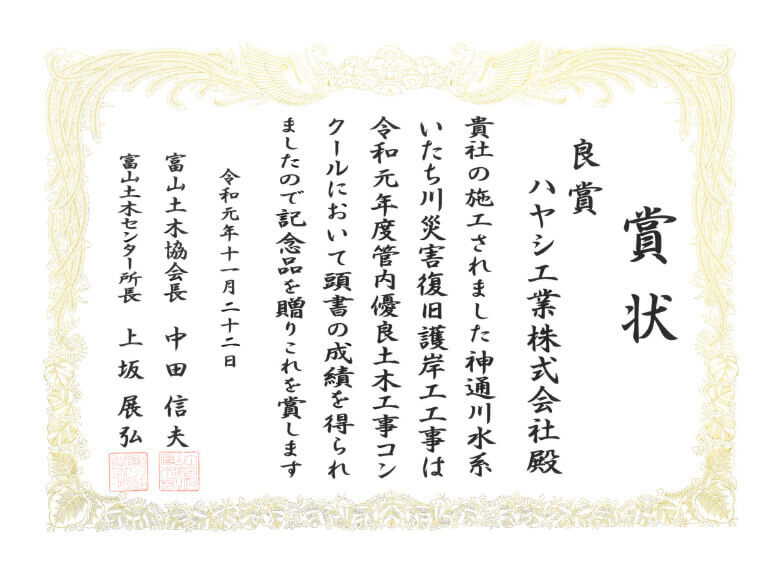 賞状
良賞
ハヤシ工業株式会社殿
貴社の施工されました神通川水系
いたち川災害復旧護岸工工事は
令和元年度管内優良土木工事コン
クールにおいて頭書の成績を得られ
ましたので記念品を贈りこれを賞します
令和元年十一月二十二日
富山土木協会長 中田信夫
富山土木センター所長 上坂展弘